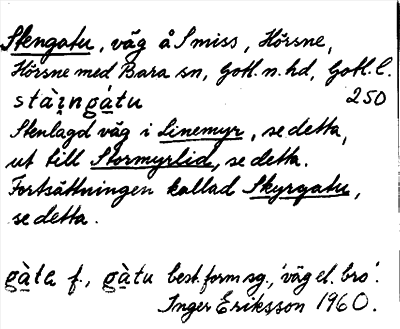 Stengatu, väg å Smiss, Hörsne,
Hörsne med Bara sn, Gotl. n. hd, Gotl. l.
stài̯ngàtu 250
Stenlagd väg i Linemyr, se detta,
ut till Stormyrlid, se detta.
Fortsättningen kallad Skyrgatu,
se detta.
gàta f., gàtu best. form sg., 'väg el. bro'.
Inger Eriksson 1960.